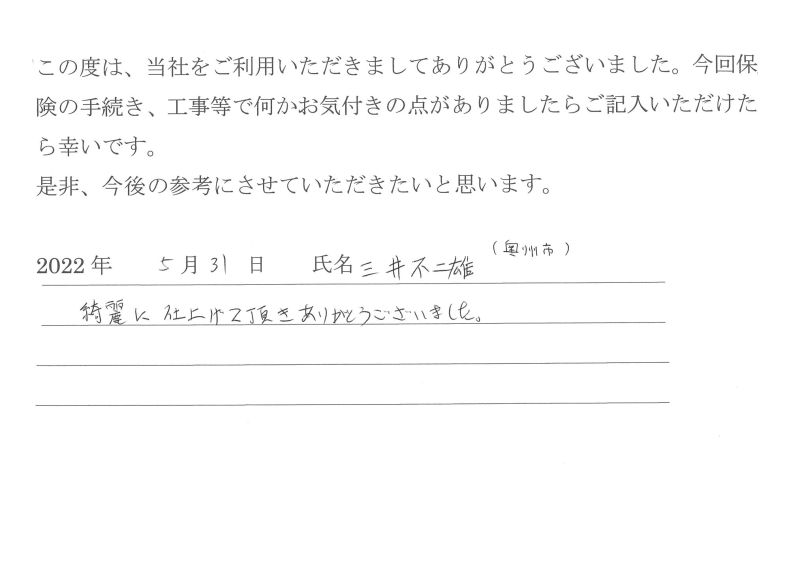 この度は、当社をご利用いただきましてありがとうございました。今回保
険の手続き、工事等で何かお気付きの点がありましたらご記入いただけた
ら幸いです。
是非、今後の参考にさせていただきたいと思います。
(奥州市)
2022年 5月31日 氏名 三井不二雄
綺麗に仕上げて頂きありがとうございました。